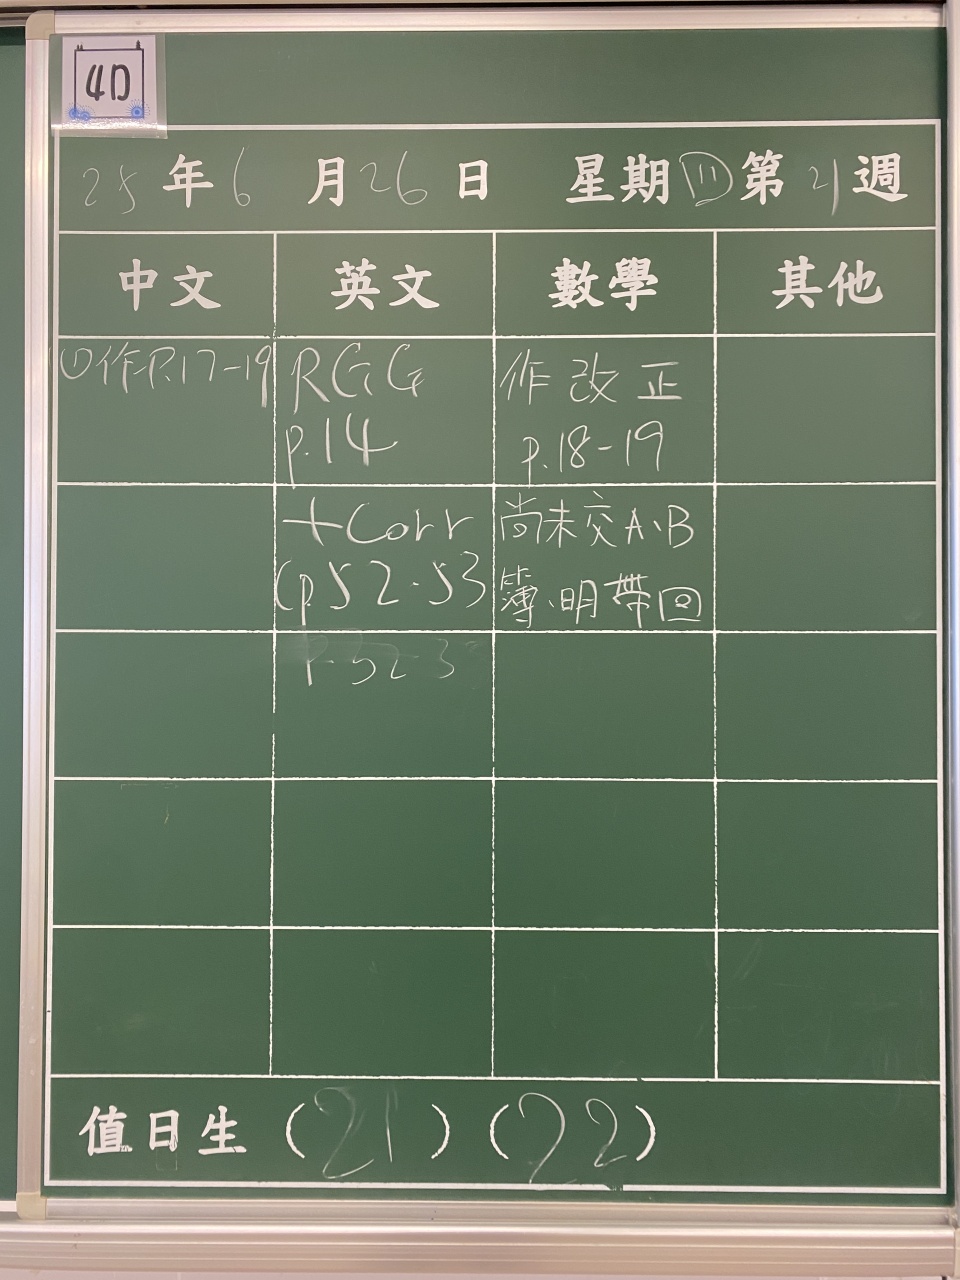 4D
25年6月26日 星期四第21週
中文 英文 數學 其他
①作P.17-19
RGG
p.14
+Corr
(p52-53
P 52-3
作改正
p.18-19
尚未交A、B
簿、明帶回
值日生 (21) (22)